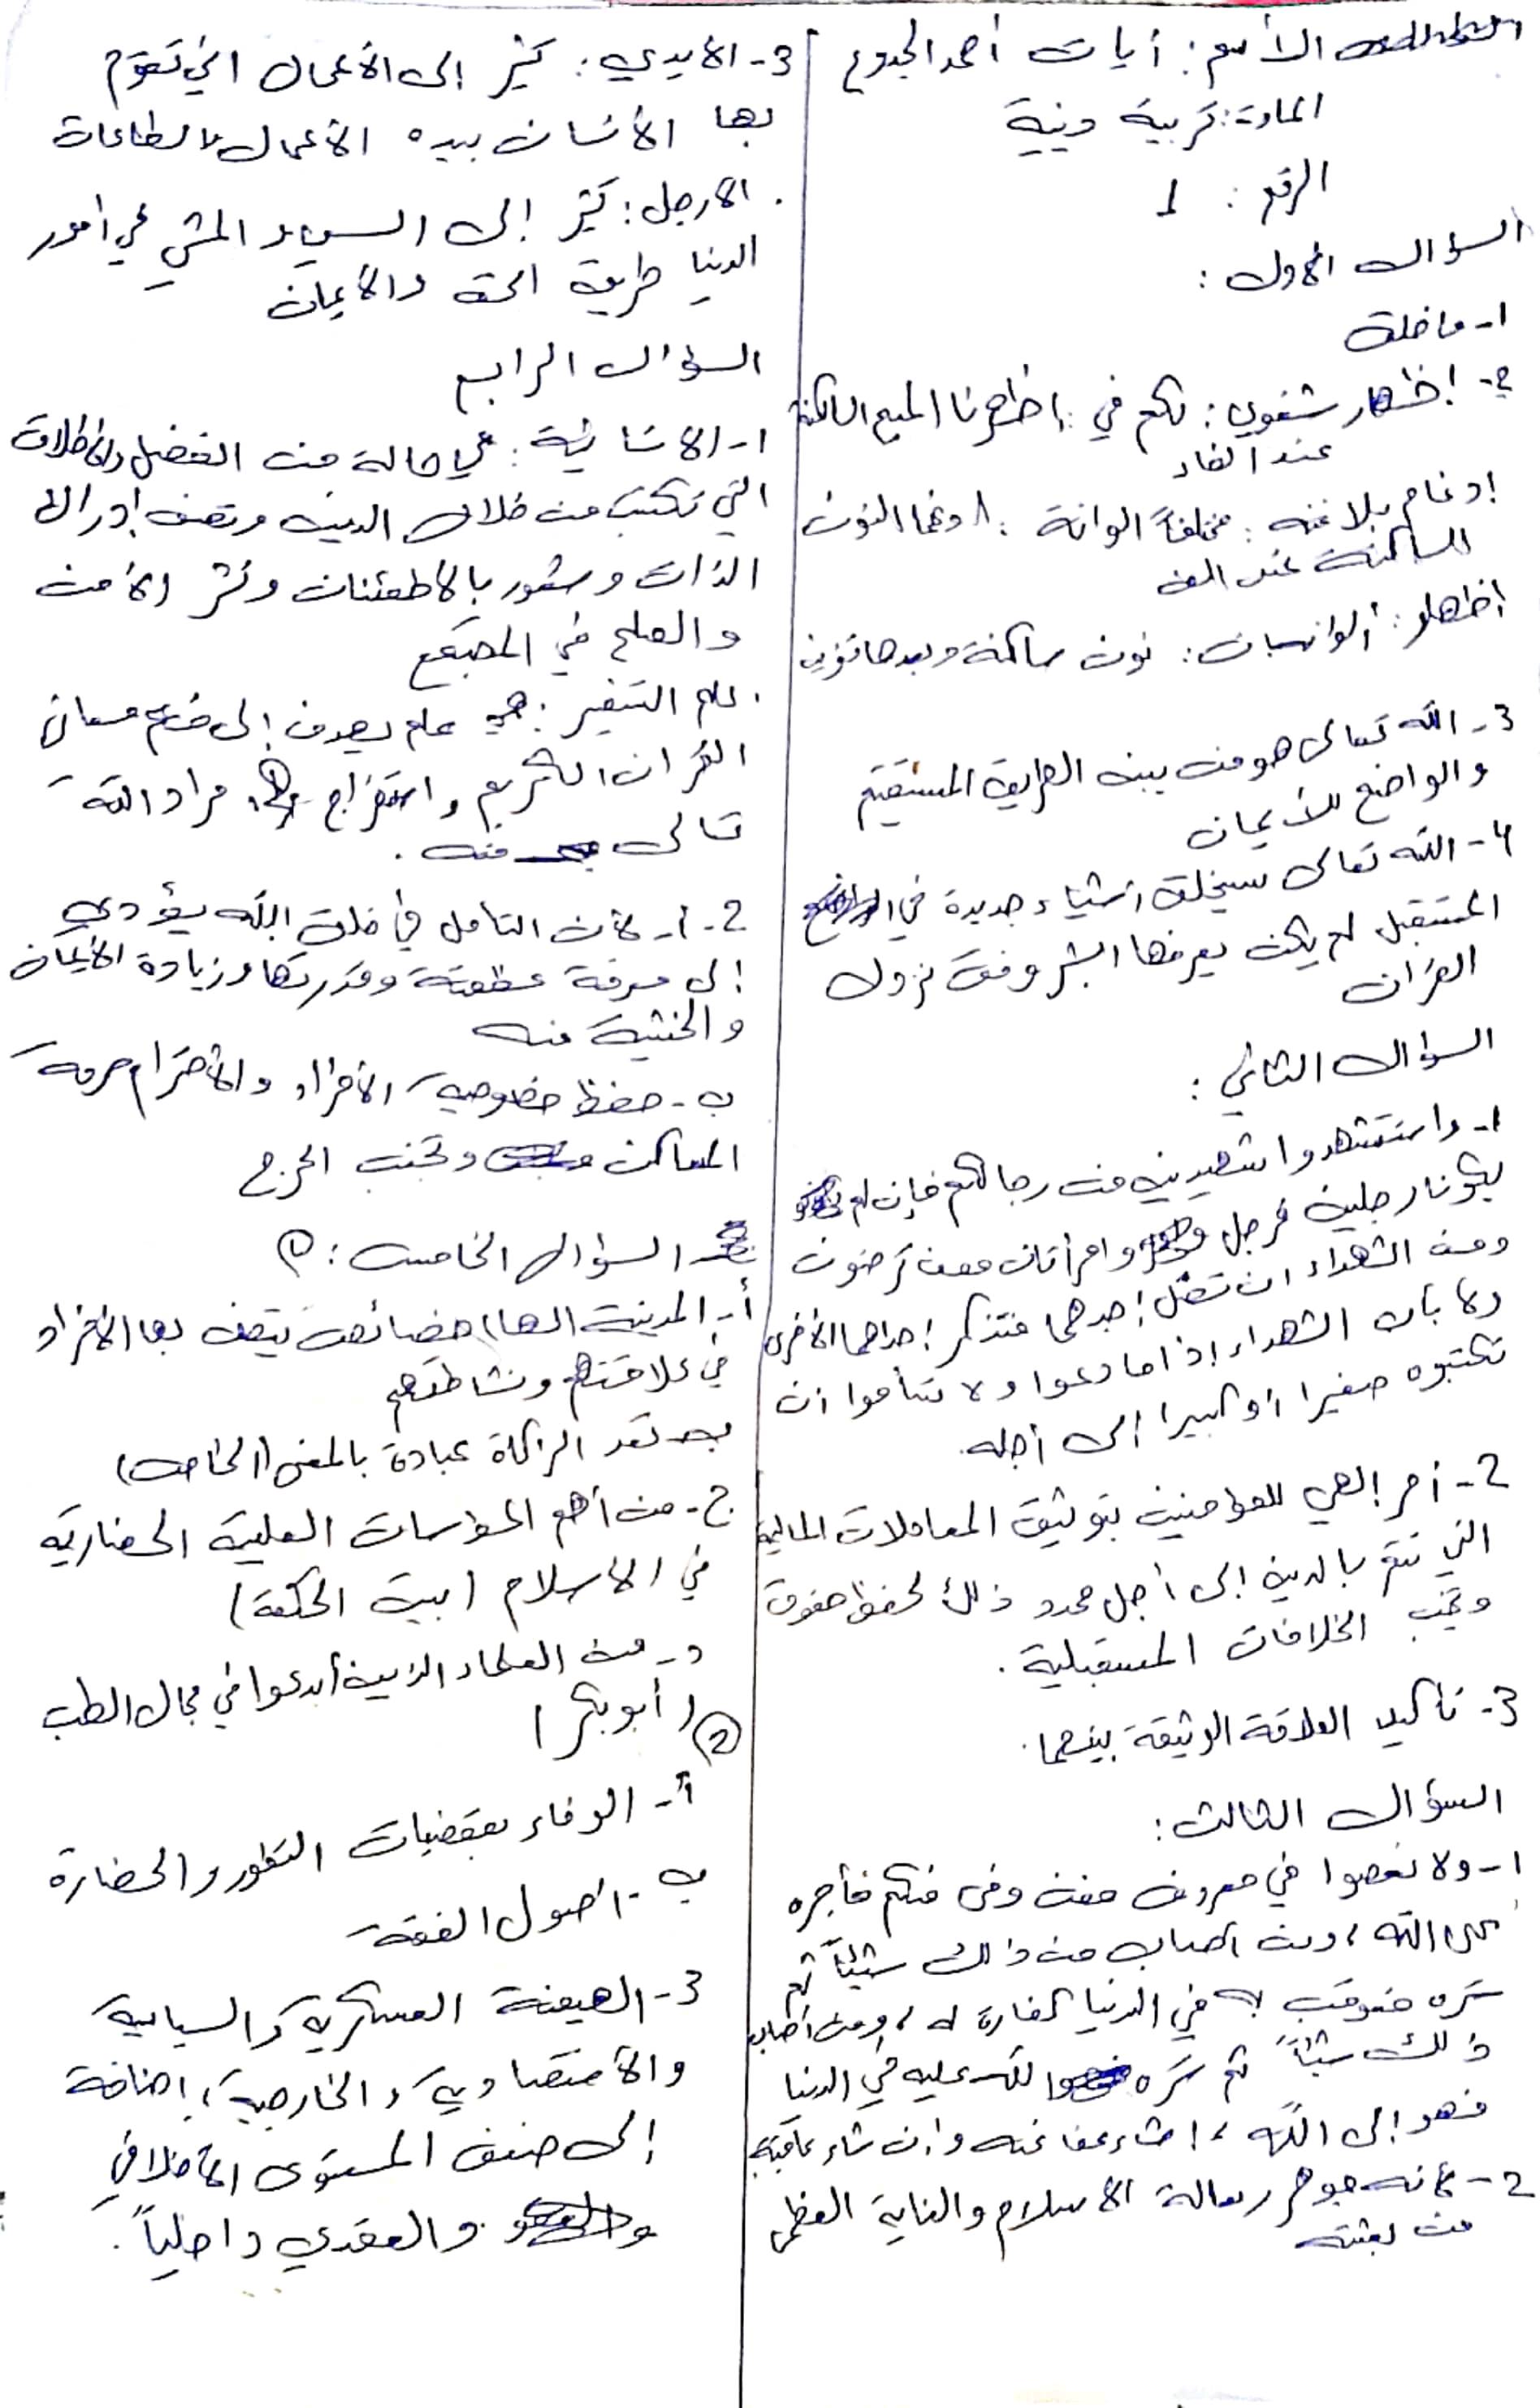 الأسم: آيات أحمد الجدوع
المادة: تربية دينية
الرقم: 1
السؤال الأول:
1- ما خلق
2- إظهار شفوي: لكم في: إظهرنا الميم الساكنة
عند الفاء
إدغام بلا غنه: مختلفاً الوانه: ادغمنا النون
الساكنة عند
اظهار: ألوانه: نون ساكنة وبعدها تنوين
3- الله تعالى هو من يبين الطريق المستقيم
والواضح للأيمان
4- الله تعالى سيخلق أشياء جديدة في
المستقبل لم يكن يعرفها البشر وقت نزول
القران
السؤال الثاني:
1- واستشهدوا شهيدين من رجالكم فإن لم
يكونا رجلين فرجل وامرأتان ممن ترضون
ومن الشهداء ان تضل إحدهما فتذكر إحداهما الأخرى
ولا يأب الشهداء إذا ما دعوا ولا تسأموا ان
تكتبوه صغيرا أو كبيرا إلى أجله.
2- أمر إلهي للمؤمنين بتوثيق المعاملات المالية
التي تتم بالدين إلى أجل محدد ذلك لحفظ حقوق
وتجنب الخلافات المستقبلية.
3- تأكيد العلاقة الوثيقة بينهما.
السؤال الثالث:
1- ولا تعصوا في معروف فمن وفى منكم فأجره
على الله، ومن أصاب من ذلك شيئاً ثم
ستره فعوقب به في الدنيا كفارة له، ومن أصاب
ذلك شيئاً ثم ستره الله عليه في الدنيا
فهو إلى الله، إشاء عفا عنه وإن شاء عاقبة
2- لأنه جوهر رسالة الأسلام والغاية العظمى
من بعثته
3- الأيدي: تشير إلى الأعمال التي تقوم
بها الأنسان بيده الأعمال لالطاعات
. الأرجل: تشير إلى السير المشي في أمور
الدنيا طريق الحق والأيمان
السؤال الرابع
1- الأنسانية: هي حالة من الفضل والأخلاق
التي تكتسب من خلال الدين وتعني إدراك
الذات وشعور بالأطمئنان ونشر الأمن
والصلح في المجتمع
. علم التفسير: هو علم يهدف إلى فهم معاني
القران الكريم واستخراج مراد الله
تعالى منه.
2- أ- لأن التأمل في خلق الله يؤدي
إلى معرفة عظمته وقدرتها وزيادة الأيمان
والخشية منه
ب- حفظ خصوصية الأفراد والأحترام حرمة
المساكن وتجنب الحرج
السؤال الخامس: ①
أ- المدينة (لها) خصائص يتصف بها الأفراد
في علاقتهم ونشاطهم
ب- تعد الزكاة عبادة بالمعنى (الخاص)
ج- من أهم المؤسسات العلمية الحضارية
في الأسلام (بيت الحكمة)
د- من العلماء الذين أبدعوا في مجال الطب
(أبو بكر)
②
أ- الوفاء بمقتضيات التطور والحضارة
ب- اصول الفقه
3- الهيمنة العسكرية والسياسية
والأقتصادية والخارجية، إضافة
إلى ضعف المستوى الأخلاقي
والعقدي داخلياً.